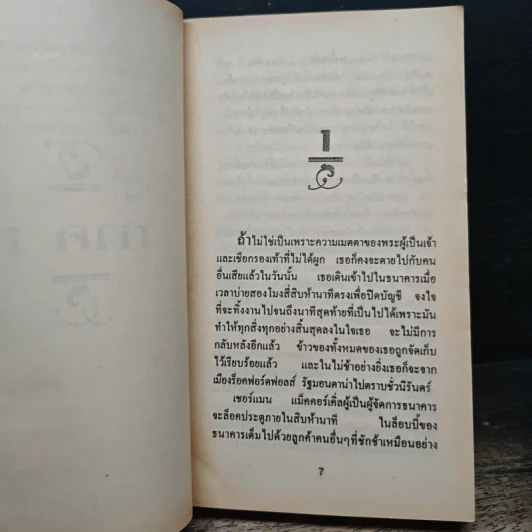 1
ถ้าไม่ใช่เป็นเพราะความเมตตาของพระผู้เป็นเจ้า
และเชือกรองเท้าที่ไม่ได้ผูก เธอก็คงจะตายไปกับคน
อื่นเสียแล้วในวันนั้น เธอเดินเข้าไปในธนาคารเมื่อ
เวลาบ่ายสองโมงสี่สิบห้านาทีตรงเพื่อปิดบัญชี จงใจ
ที่จะทิ้งงานไปจนถึงนาทีสุดท้ายที่เป็นไปได้เพราะมัน
ทำให้ทุกสิ่งทุกอย่างสิ้นสุดลงในใจเธอ จะไม่มีการ
กลับหลังอีกแล้ว ข้าวของทั้งหมดของเธอถูกจัดเก็บ
ไว้เรียบร้อยแล้ว และในไม่ช้าอย่างยิ่งเธอก็จะจาก
เมืองร็อคฟอร์ดฟอลส์ รัฐมอนตาน่าไปตราบชั่วนิรันดร์
เชอร์แมน แม็คคอร์เคิ่ลผู้เป็นผู้จัดการธนาคาร
จะล็อคประตูภายในสิบห้านาที ในล็อบบี้ของ
ธนาคารเต็มไปด้วยลูกค้าคนอื่นๆที่ชักช้าเหมือนอย่าง
7